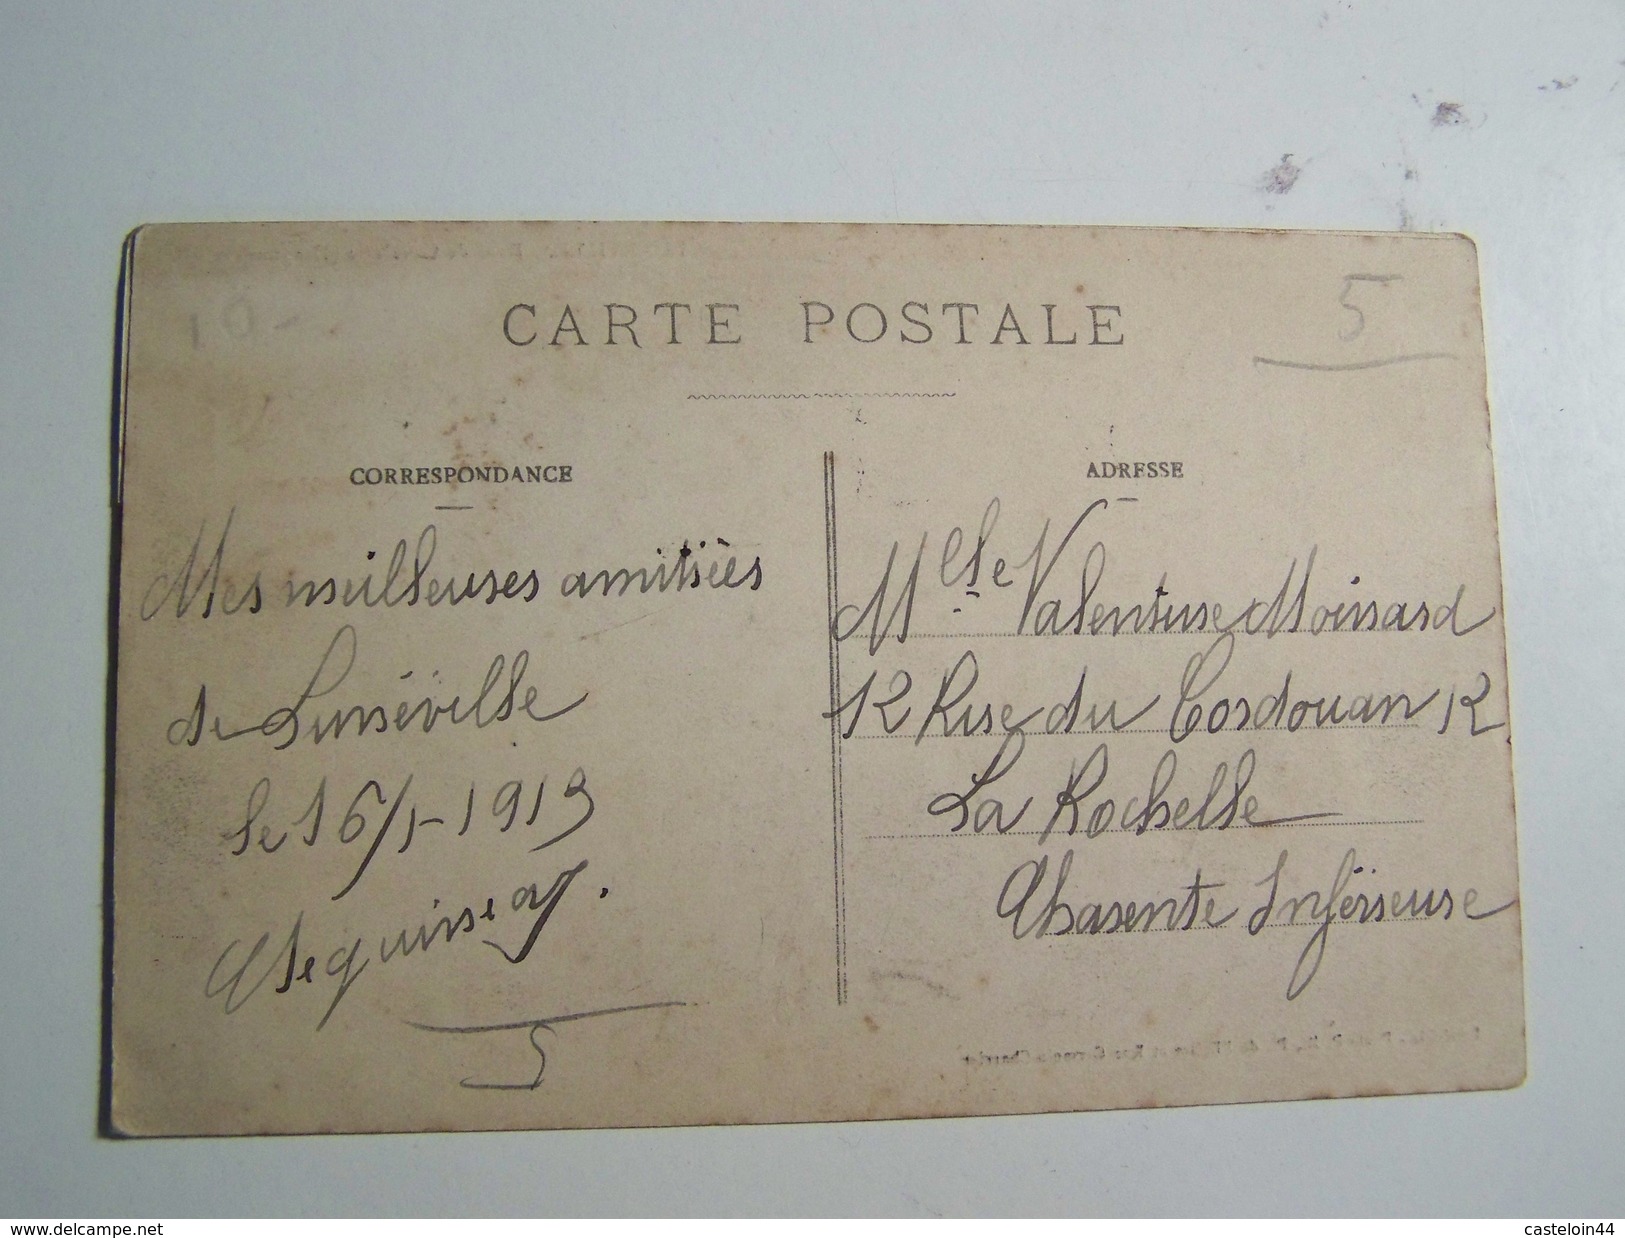 CARTE POSTALE
10-
5
CORRESPONDANCE
Mes meilleuses amitiées
de Lunéville
le 16/1-1913
5
ADRESSE
Mlle Valentine Moinard
12 Rue du Cordouan 12
La Rochelle
Charente Inférieure
www.delcampe.net
casteloin44